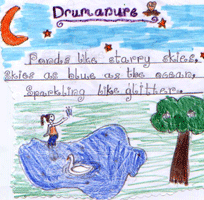 Drumanure
Ponds like starry skies,
Skies as blue as the ocean,
Sparkling like glitter.